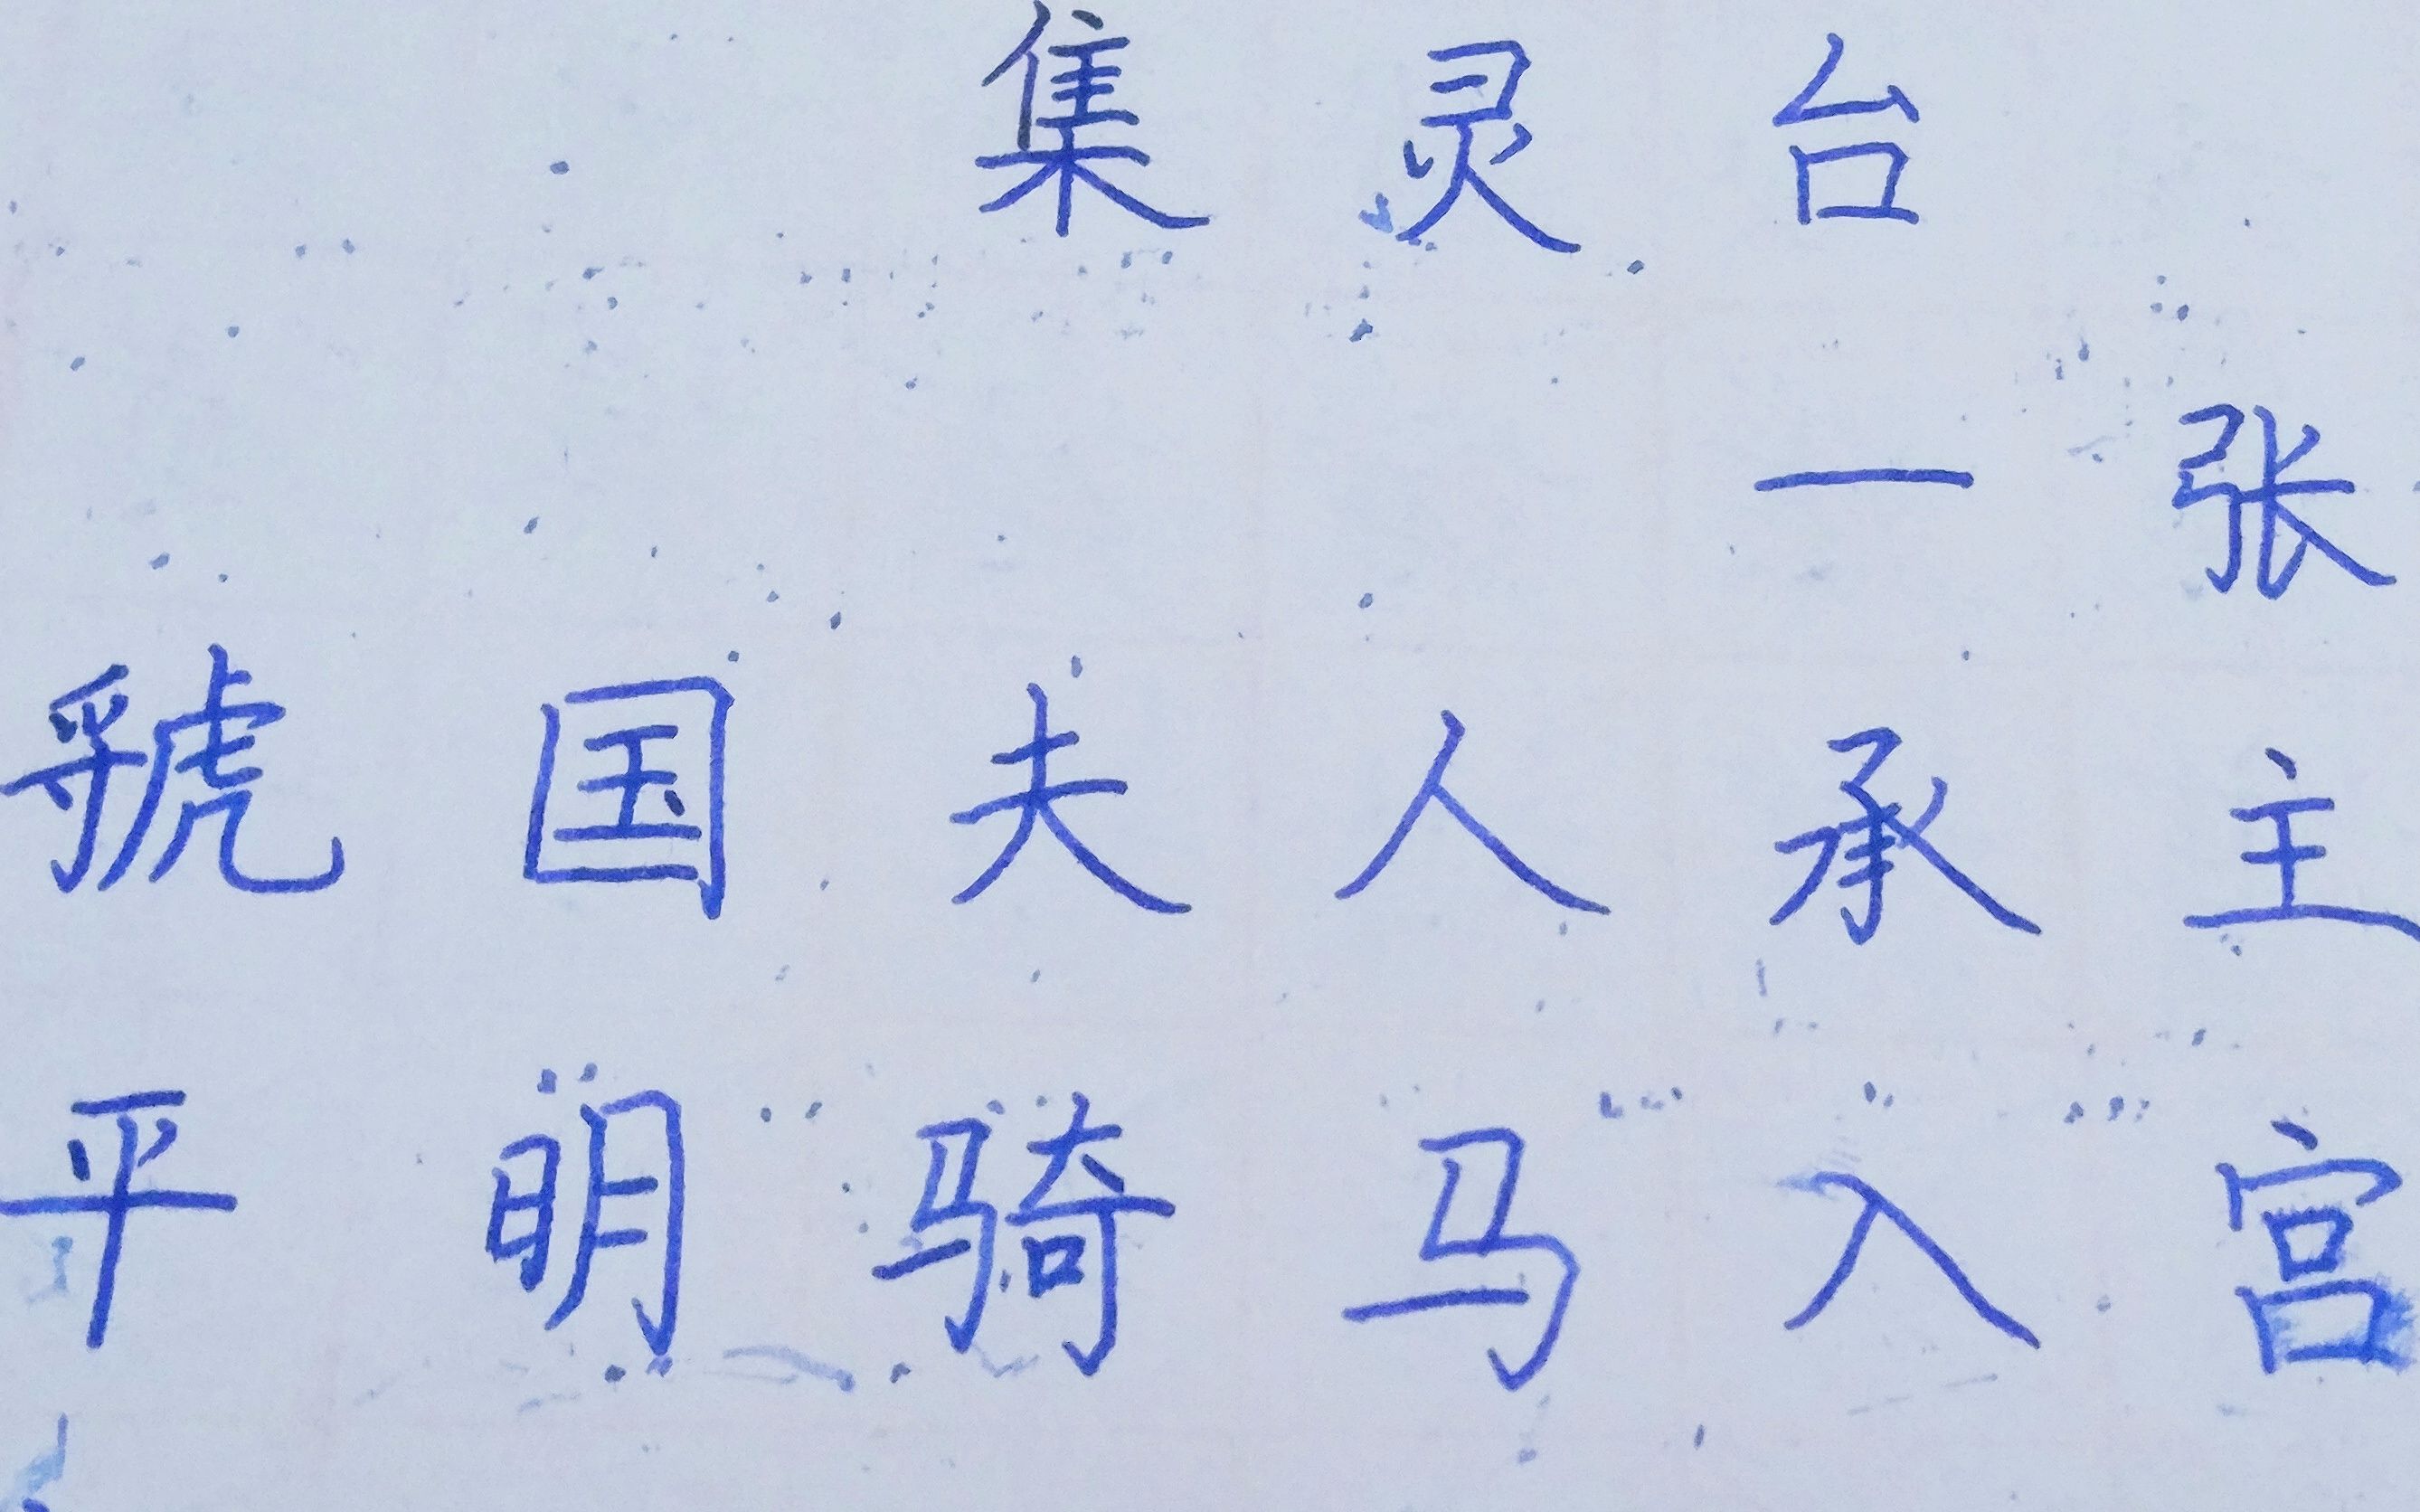 集灵台
一张
虢国夫人承主
平明骑马入宫